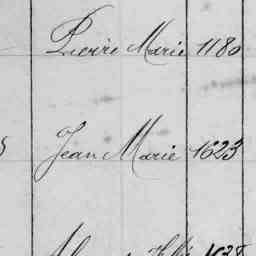 Pierre Marie 1180
Jean Marie 1623